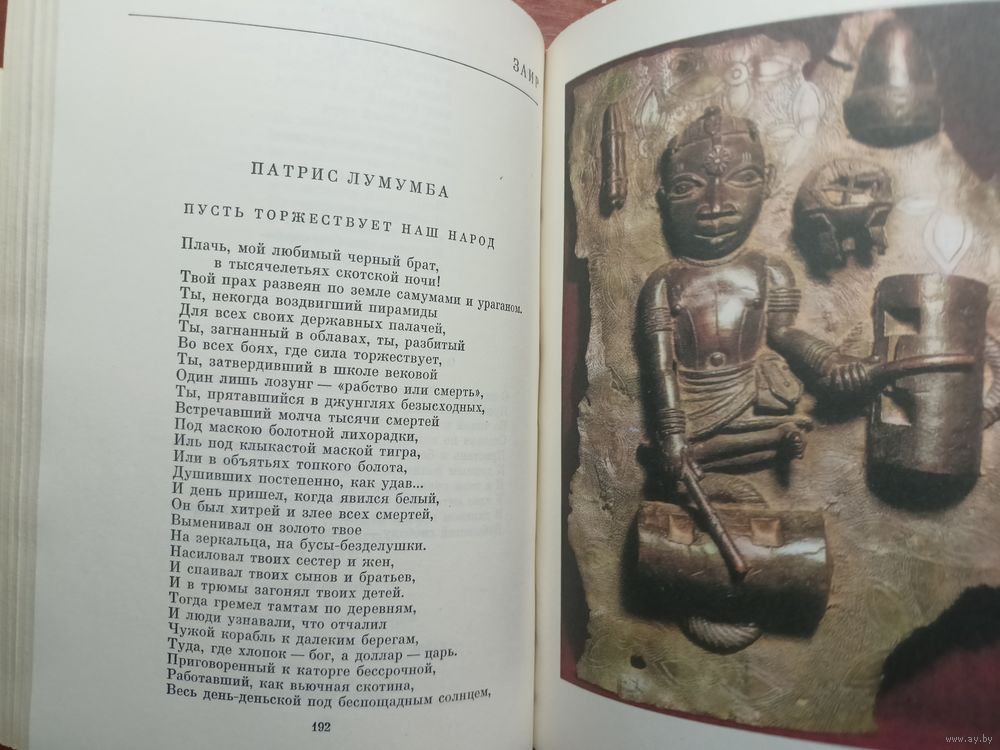 ЗАИР
ПАТРИС ЛУМУМБА
ПУСТЬ ТОРЖЕСТВУЕТ НАШ НАРОД
Плачь, мой любимый черный брат,
в тысячелетьях скотской ночи!
Твой прах развеян по земле самумами и ураганом.
Ты, некогда воздвигший пирамиды
Для всех своих державных палачей,
Ты, загнанный в облавах, ты, разбитый
Во всех боях, где сила торжествует,
Ты, затвердивший в школе вековой
Один лишь лозунг — «рабство или смерть»,
Ты, прятавшийся в джунглях безысходных,
Встречавший молча тысячи смертей
Под маскою болотной лихорадки,
Иль под клыкастой маской тигра,
Или в объятьях топкого болота,
Душивших постепенно, как удав...
И день пришел, когда явился белый,
Он был хитрей и злее всех смертей,
Выменивал он золото твое
На зеркальца, на бусы-безделушки.
Насиловал твоих сестер и жен,
И спаивал твоих сынов и братьев,
И в трюмы загонял твоих детей.
Тогда гремел тамтам по деревням,
И люди узнавали, что отчалил
Чужой корабль к далеким берегам,
Туда, где хлопок — бог, а доллар — царь.
Приговоренный к каторге бессрочной,
Работавший, как вьючная скотина,
Весь день-деньской под беспощадным солнцем,
192
www.ay.by